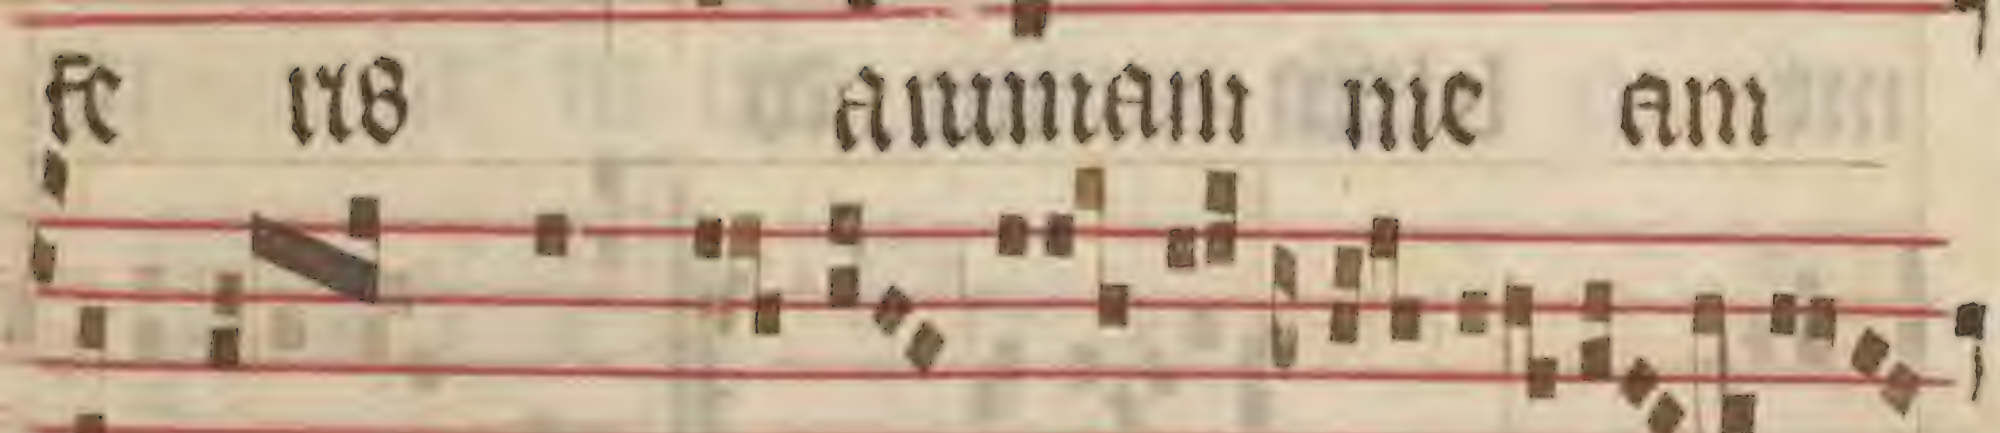 fe ris animam me am